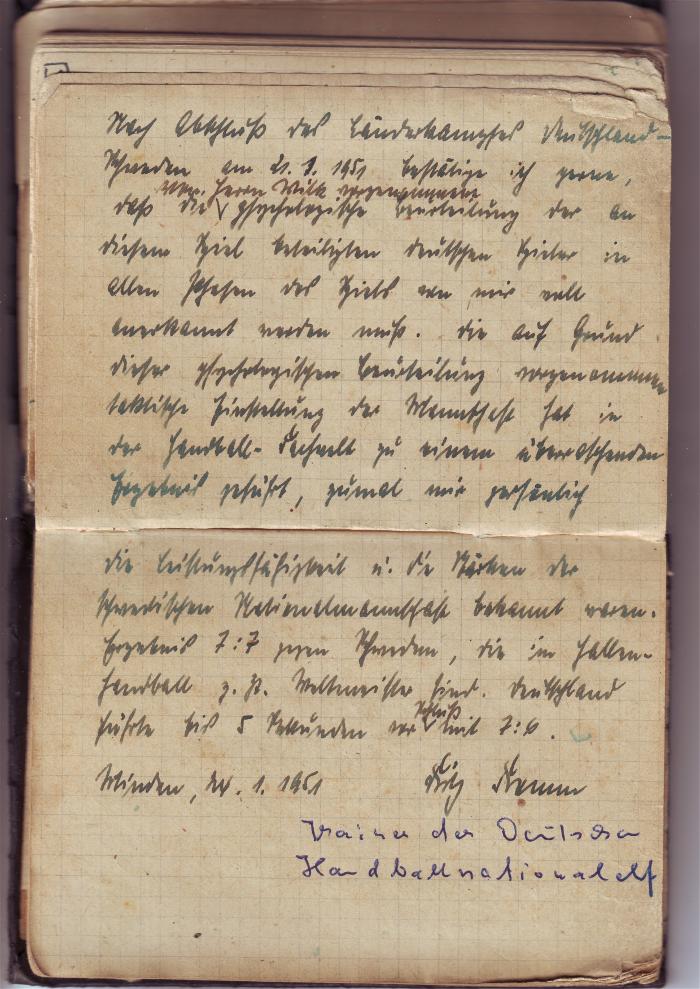 Nach Abschluß des Länderkampfes Deutschland-
Schweden am 21. 1. 1951 bestätige ich gerne,
von Herrn Wilk vorgenommene
daß die psychologische Beurteilung der an
diesem Spiel beteiligten deutschen Spieler in
allen Phasen des Spiels von mir voll
anerkannt werden muß. Die auf Grund
dieser psychologischen Beurteilung vorgenommene
taktische Einstellung der Mannschaft hat in
der Handball-Fachwelt zu einem überraschenden
Ergebnis geführt, zumal mir persönlich
die Leistungsfähigkeit u. die Stärken der
schwedischen Nationalmannschaft bekannt waren.
Ergebnis 7:7 gegen Schweden, die im Hallen-
handball z. Zt. Weltmeister sind. Deutschland
Schluß
führte bis 5 Sekunden vor mit 7:6.
Minden, 1. 1951 Fritz Fromm
Trainer der Deutschen
Handballnationalelf